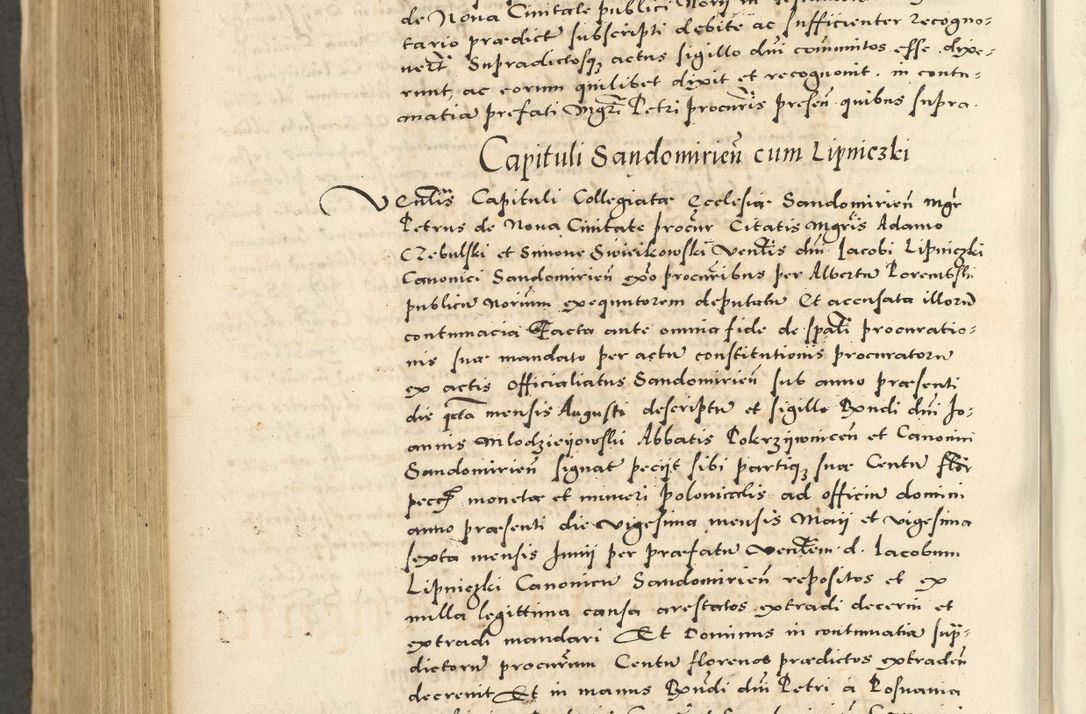 de Nova Civitate publici Norii in
tario prædict subscripti debite ac sufficienter recogno-
ver̃t Supradictosq; actus sigillo dni com̃unitos esse dixe-
runt, ac eorum quilibet dixit et recognovit. in contu-
matia præfati Mgri Petri procũris presen̄ quibus supra.
Capituli Sandomirien̄ cum Lipniczki
Venlis Capituli Collegiatæ Ecclesiæ Sandomirien̄ mgr
Petrus de Nova Civitate procur Citatis mgris Adamo
Czebulski et Simone Swieikowski Ven̄lis dni Jacobi Lipniczki
Canonici Sandomirien̄ ex̃o procur̃ibus per Albertū Porembski
publicū Norium exequutorem deputatū Et accusata illorū
contumacia Facta ante omnia fide de sp̄ali procuratio-
nis suæ mandato per actū constitutionis procuratorū
ex actis officialatus Sandomirien̄ sub anno præsenti
die q̃ta mensis Augusti descriptū et sigillo Rn̄di dni Jo-
annis Mlodzieyowski Abbatis Pokrzywnicen̄ et Canonici
Sandomirien̄ signat̄ peciit sibi partiq; suæ Centū flor
pecc̃ monetæ et numeri polonicalis ad officiū domini
anno præsenti die vigesima mensis Maii et vigesima
sexta mensis Junii per præfatū ven̄lem d. Jacobum
Lipniczki Canonicū Sandomirien̄ repositos et ex
nulla legittima causa arestatos extradi decerni et
extradi mandari Et Dominus in contumatia sup̃-
dictorū procur̃um Centū florenos prædictos extraden̄
decrevit Et in manus Rn̄di dni Petri a Posnania